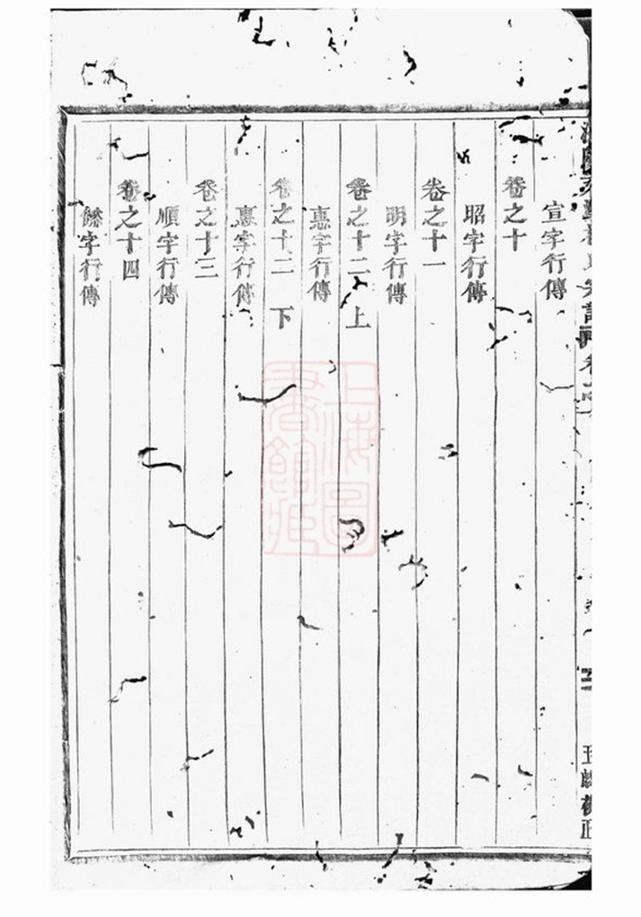 宣字行傳
卷之十
昭字行傳
卷之十一
明字行傳
卷之十二 上
惠字行傳
卷之十二 下
惠字行傳
卷之十三
順字行傳
卷之十四
餘字行傳
上海圖書館藏